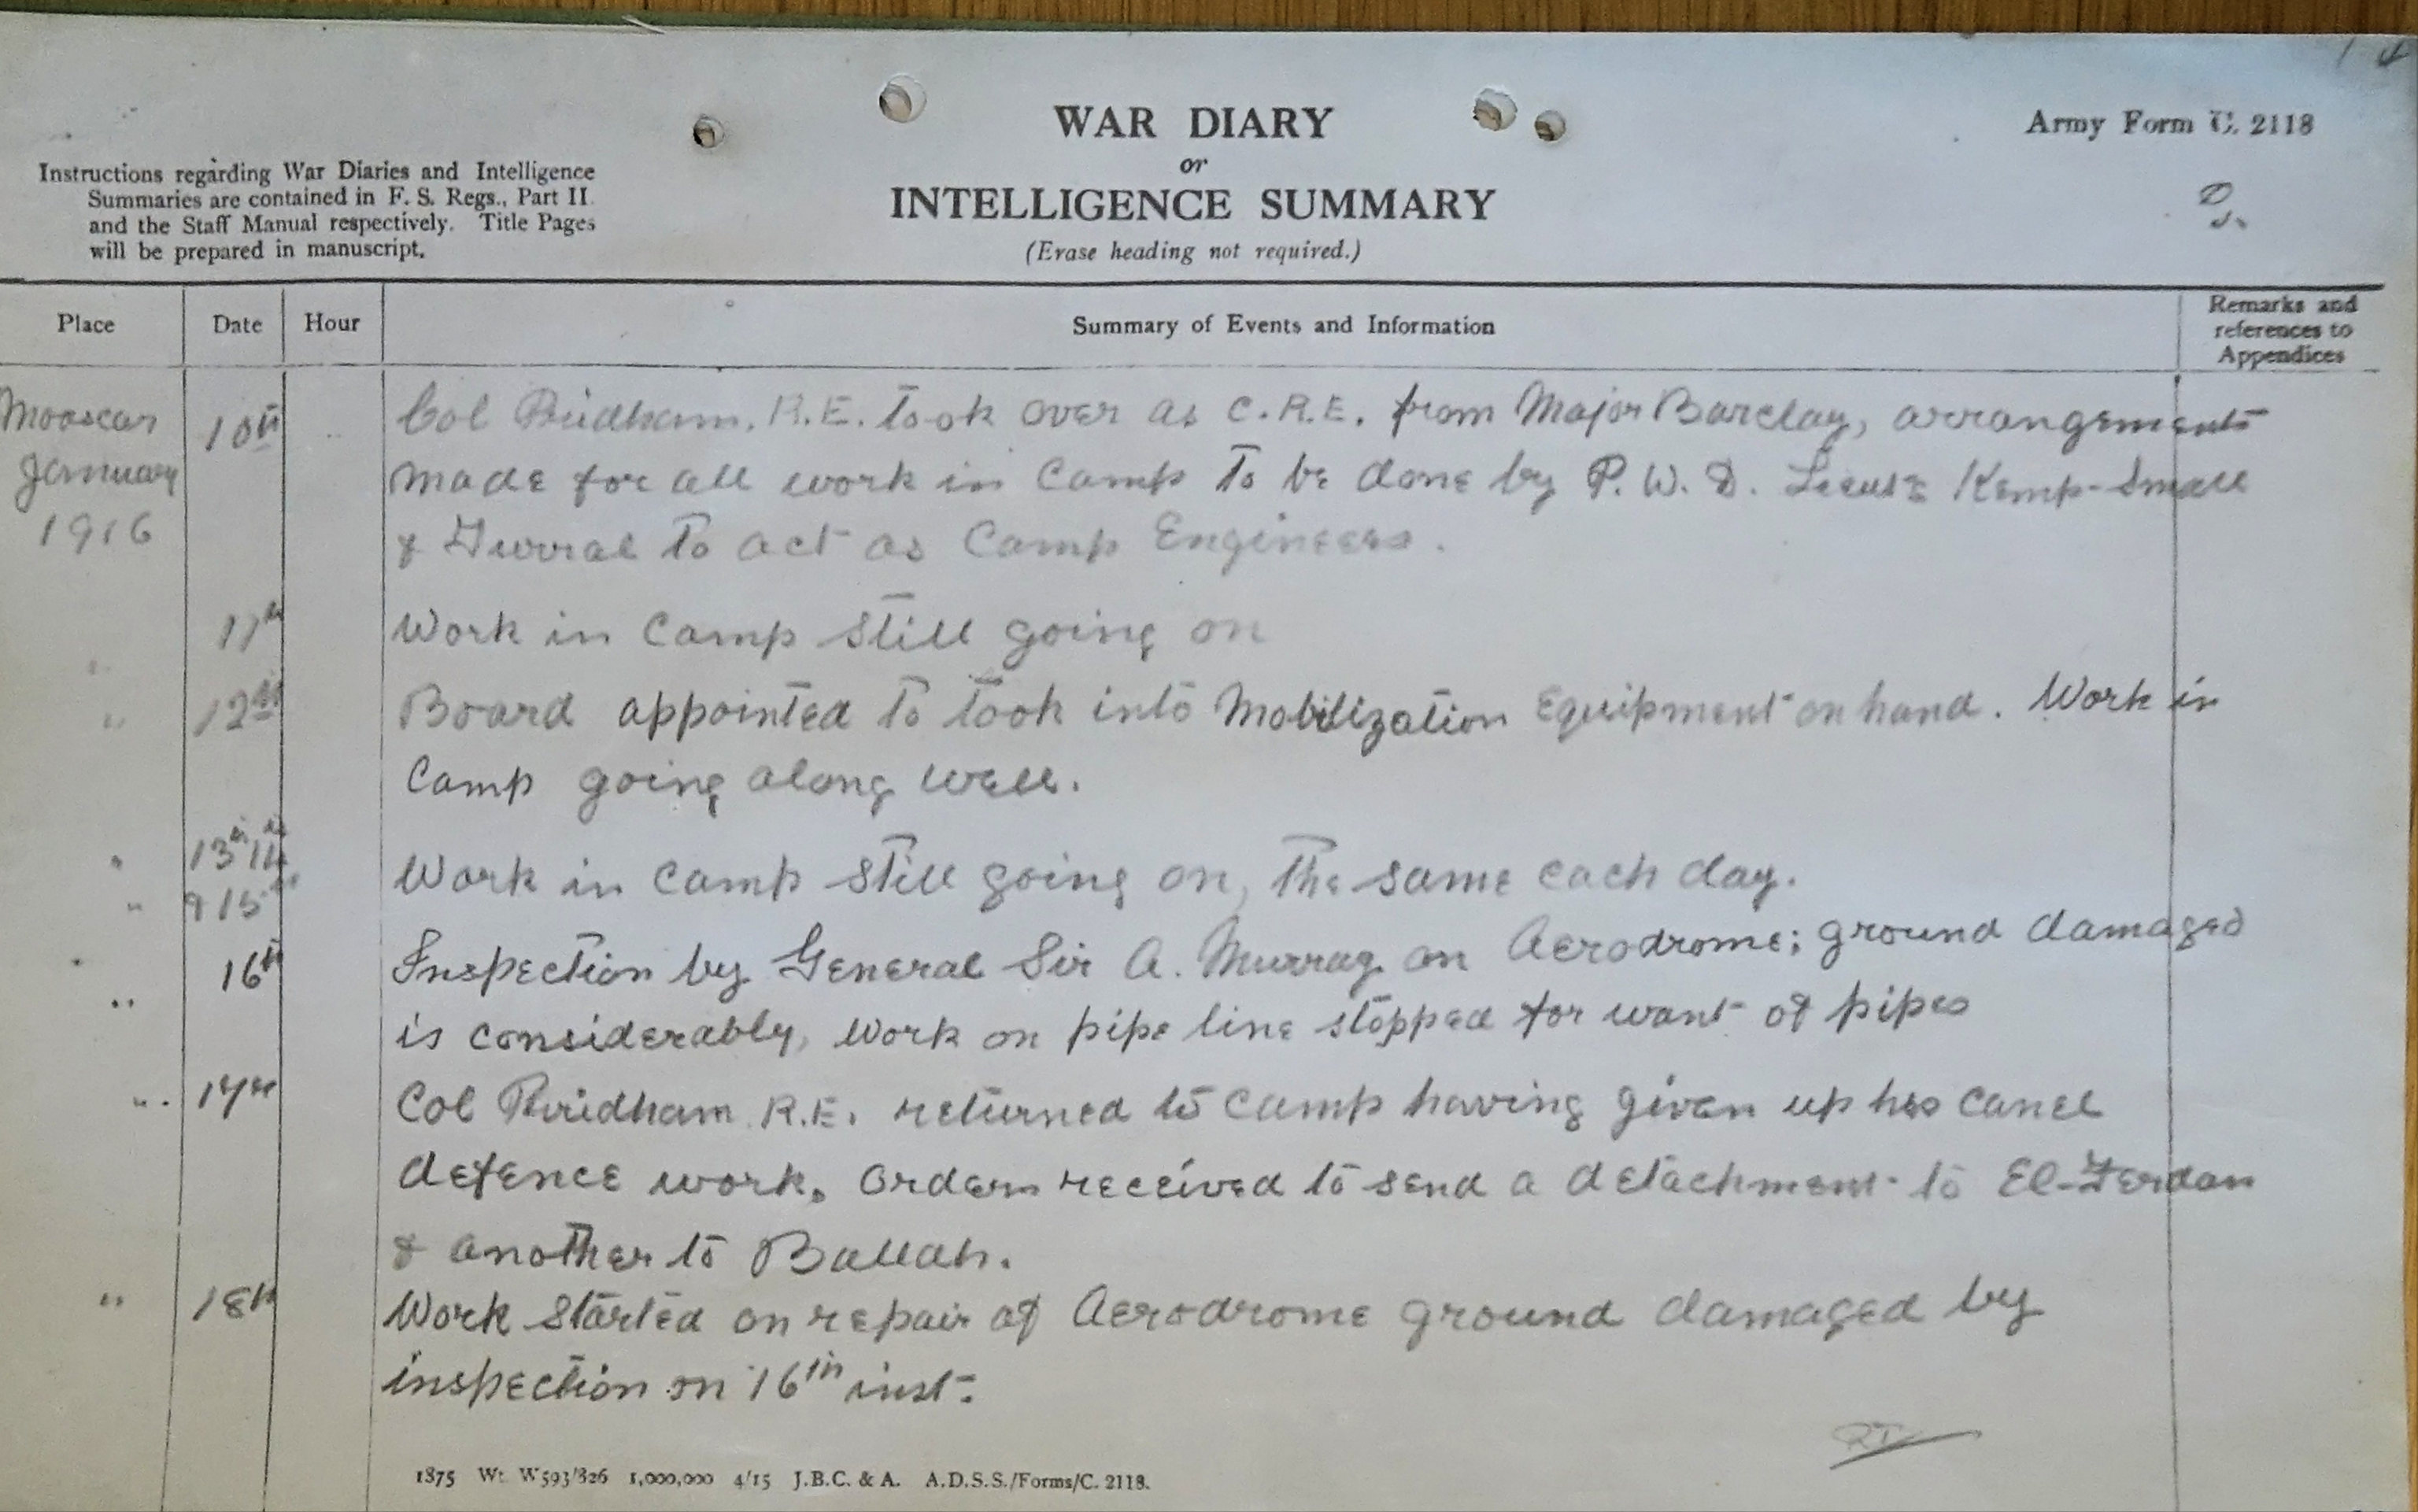 Army Form C. 2118
WAR DIARY
or
INTELLIGENCE SUMMARY
(Erase heading not required.)
Instructions regarding War Diaries and Intelligence
Summaries are contained in F. S. Regs., Part II
and the Staff Manual respectively. Title Pages
will be prepared in manuscript.
2.
Place Date Hour Summary of Events and Information Remarks and references to Appendices
Moascar January 1916
10th Col Pridham. R.E. took over as C.R.E. from Major Barclay, arrangements
made for all work in Camp to be done by P.W.D. Lieuts Kemp-Small
& to act as Camp Engineers.
11th Work in Camp still going on
" 12th Board appointed to look into Mobilization Equipment on hand. Work in
Camp going along well.
" 13th 14th
" & 15th Work in Camp still going on, the same each day.
" 16th Inspection by General Sir A. Murray on Aerodrome; ground damaged
" is considerably, Work on pipe line stopped for want of pipes
" 17th Col Pridham R.E. returned to Camp having given up his canel
defence work. Orders received to send a detachment to El-Ferdan
& another to Ballah.
" 18th Work started on repair of Aerodrome ground damaged by
inspection on 16th inst.
1875 Wt. W593/826 1,000,000 4/15 J.B.C. & A. A.D.S.S./Forms/C. 2118.